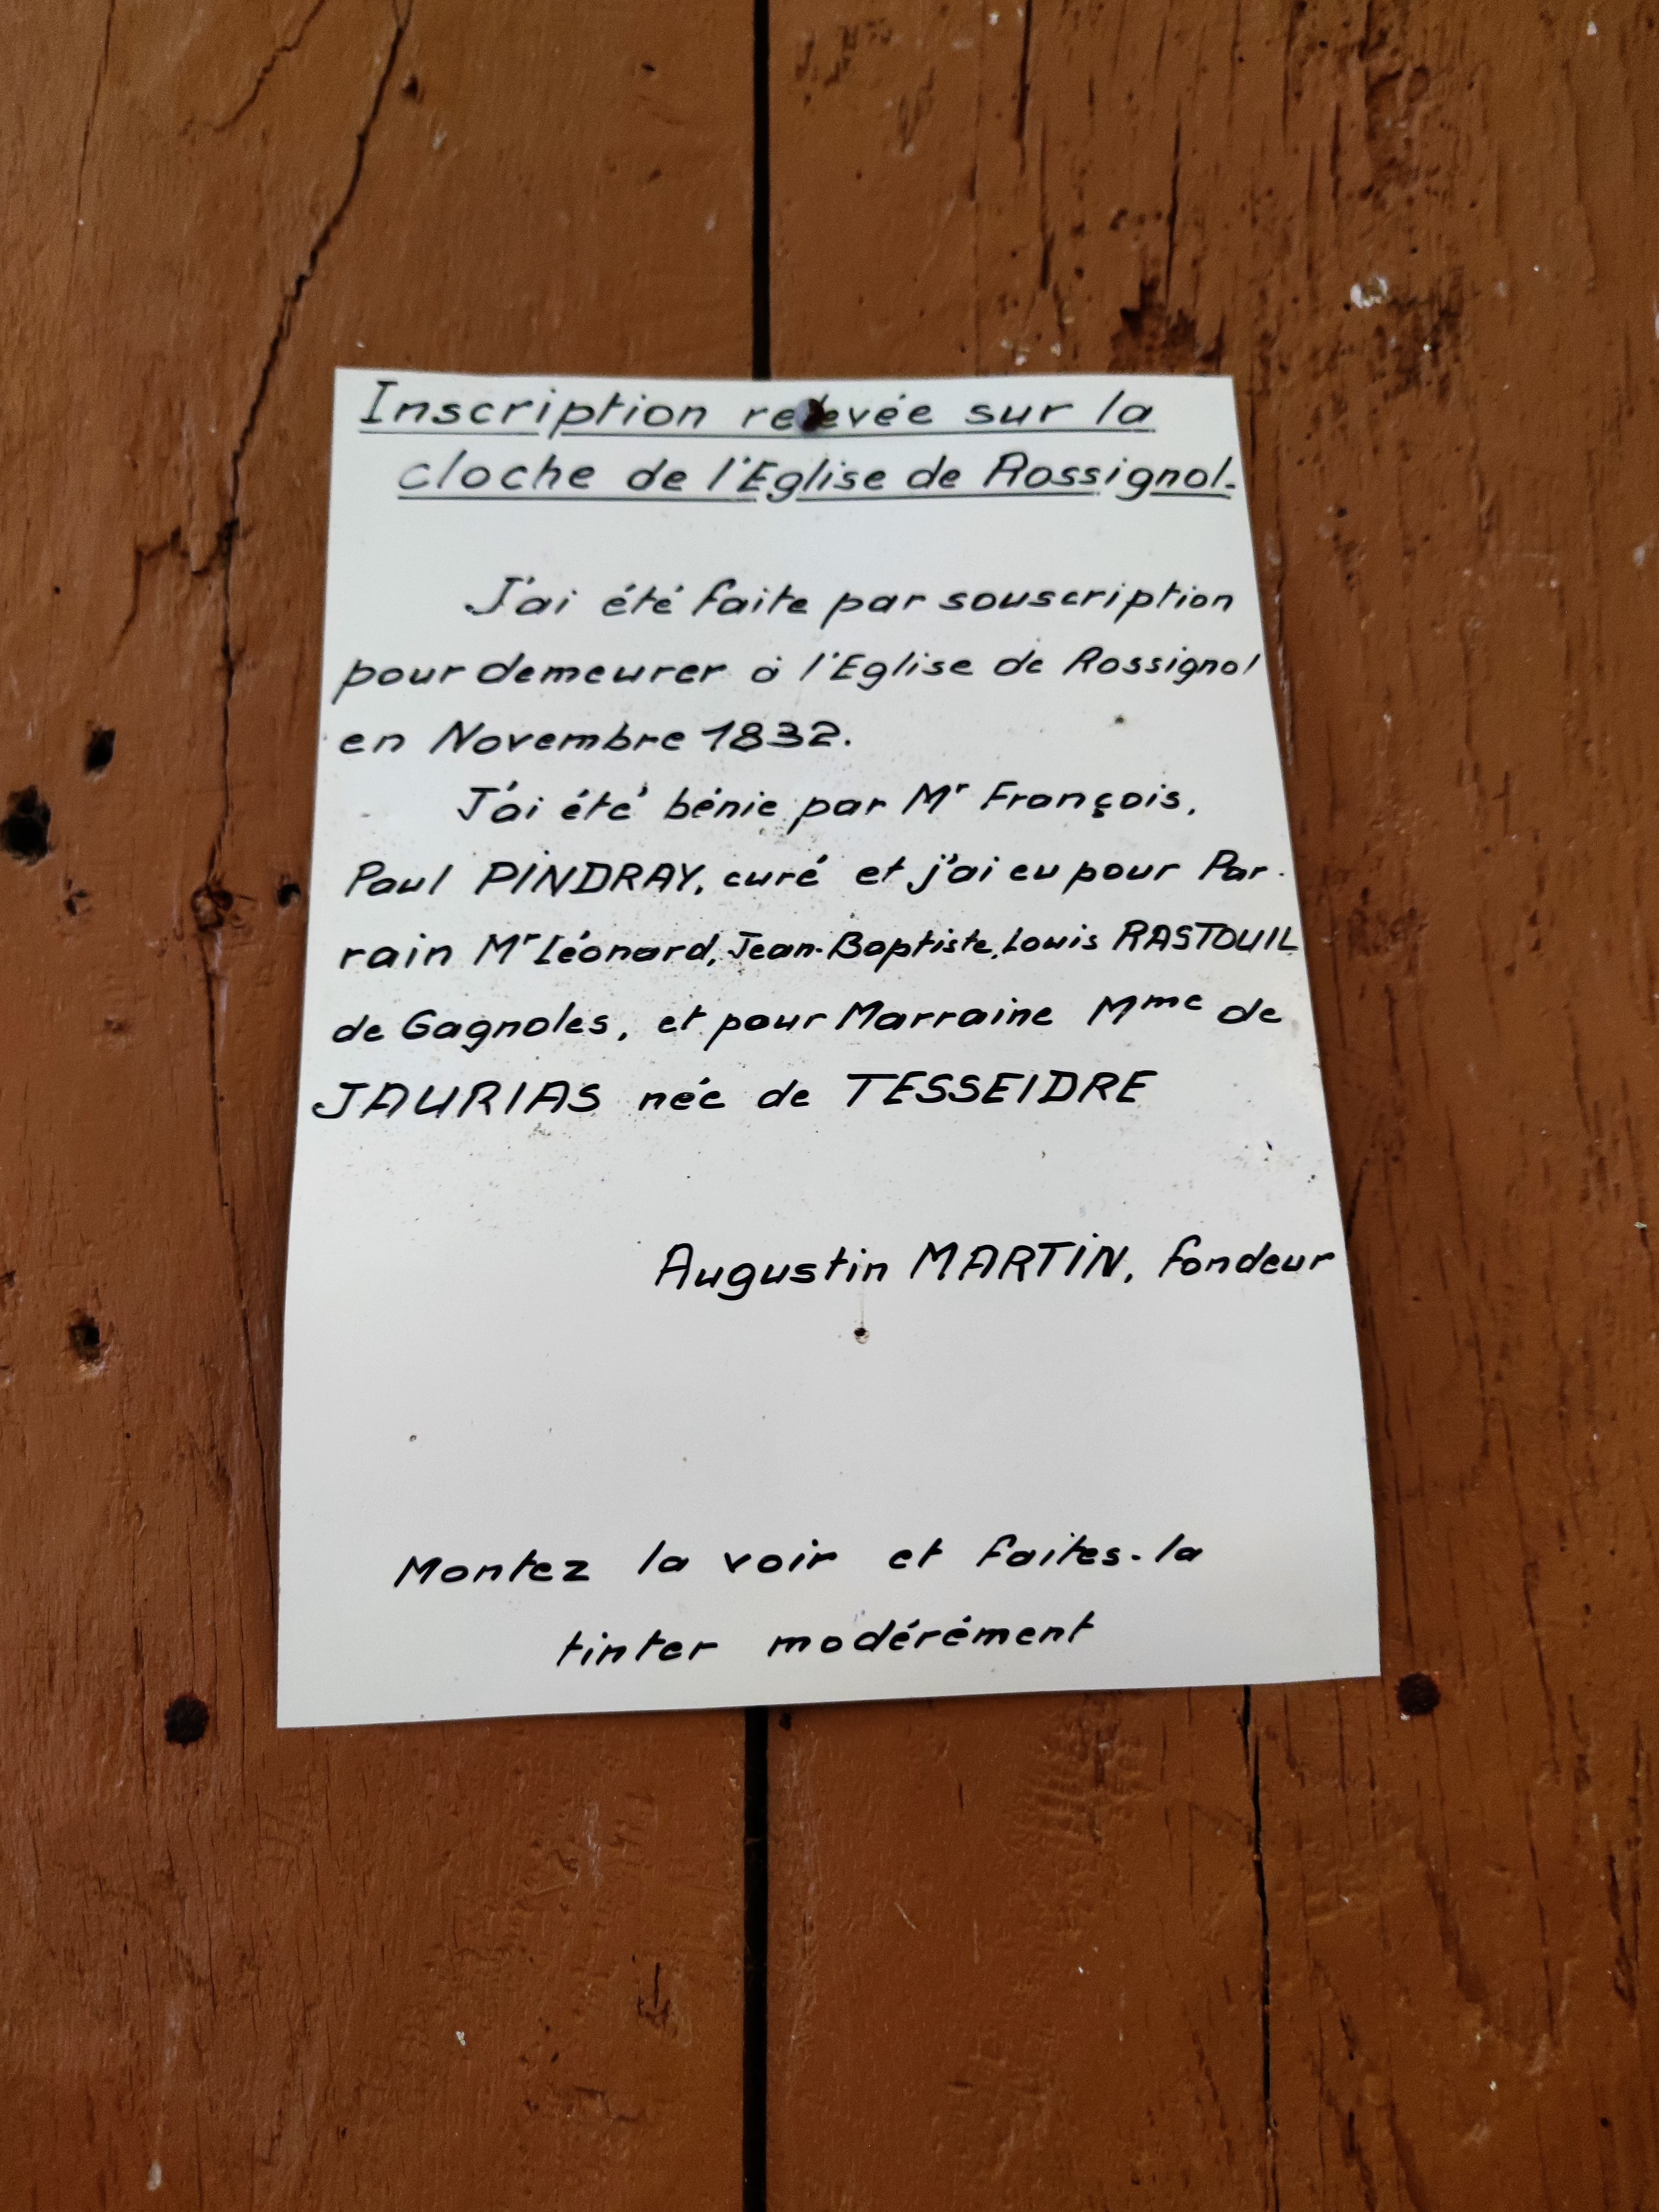 Inscription relevée sur la
cloche de l'Eglise de Rossignol.
J'ai été faite par souscription
pour demeurer à l'Eglise de Rossignol
en Novembre 1832.
J'ai été bénie par Mr François,
Paul PINDRAY, curé et j'ai eu pour Par-
rain Mr Léonard, Jean-Baptiste, Louis RASTOUIL
de Gagnoles, et pour Marraine Mme de
JAURIAS née de TESSEIDRE
Augustin MARTIN, fondeur
Montez la voir et faites-la
tinter modérément